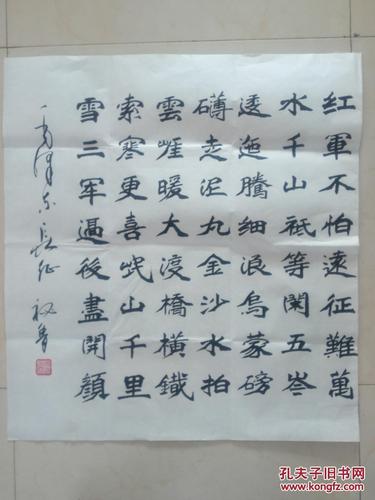 红軍不怕遠征難萬
水千山祗等閑五岺
逶迤騰细浪烏蒙磅
礴走泥丸金沙水拍
雲崕暖大渡橋橫鐵
索寒更喜岷山千里
雪三军過後盡開顏
毛泽东長征
孔夫子旧书网
www.kongfz.com